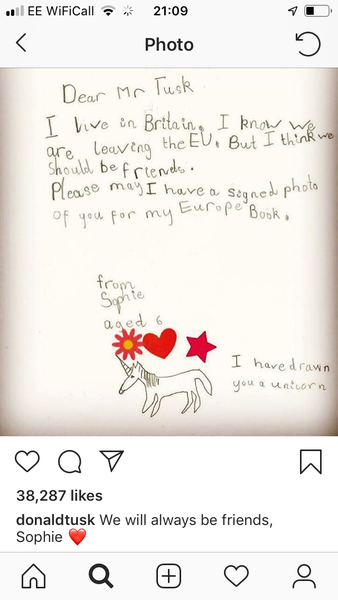 EE WiFiCall 21:09
Photo
Dear Mr Tusk
I live in Britain. I know we
are leaving the EU. But I think we
should be friends.
Please may I have a signed photo
of you for my Europe Book.
from
Sophie
aged 6
I have drawn
you a unicorn
38,287 likes
donaldtusk We will always be friends,
Sophie ❤️